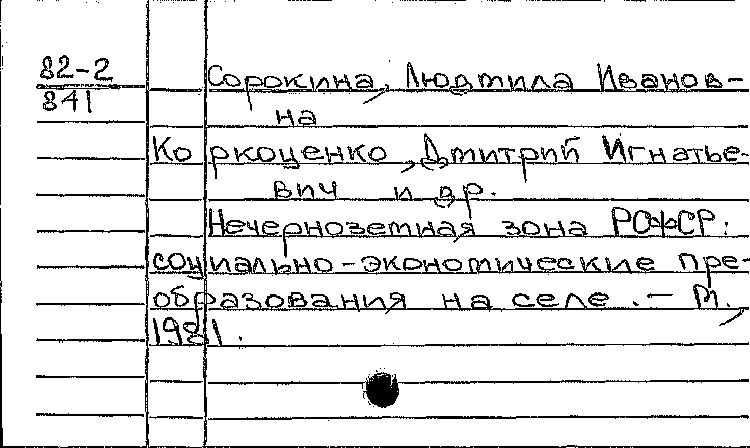 82-2
841
Сорокина, Людмила Иванов-
на
Коркоценко, Дмитрий Игнатье-
вич и др.
Нечерноземная зона РСФСР:
социально-экономические пре-
образования на селе. - М.,
1981.